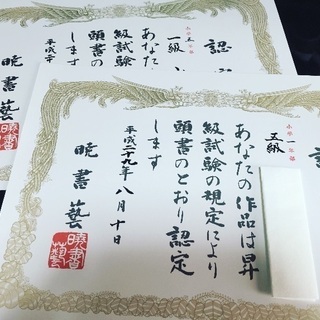 認
小学五年部
一級
あなた
級試験
頭書の
します
平成二
暁書藝
認
小学一年部
五級
あなたの作品は昇
級試験の規定により
頭書のとおり認定
します
平成二十九年八月十日
暁書藝